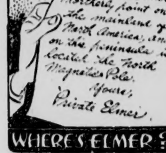 Northerly point on
the mainland of
North America, and
on the peninsula is
located the North
Magnetic Pole.
Yours,
Private Elmer.
WHERE'S ELMER?